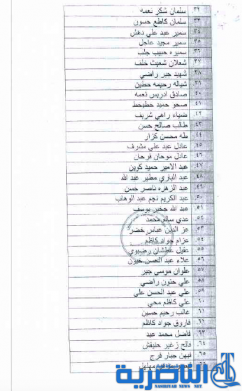 ٣٢ سلمان شكر نعمه
٣٣ سلمان كاطع حسون
٣٤ سمير عبد علي دهش
٣٥ سمير مجيد عاجل
٣٦ سميره حبيب جلب
٣٧ شعلان شعيث خلف
٣٨ شهيد جبر راضي
٣٩ شياله رحيمه حطحن
٤٠ صادق ادريس نعمه
٤١ صحو حميد
٤٢ ضياء راهي شريف
٤٣ طالب صالح حسن
٤٤ طه محسن كزار
٤٥ عادل عبد علي مشرف
٤٦ عادل سوحان فرحان
٤٧ عبد الامير حميد كوين
٤٨ عبد الباري مطير عبد الله
٤٩ عبد الزهره ناصر حسن
٥٠ عبد الكريم نجم عبد الوهاب
٥١ عبد الله يوسف
٥٢ عدي محمد
٥٣ عز الدين عباس خضر
٥٤ عزام جواد كاظم
٥٥ عقيل
٥٦ علاء عبد الحسن
٥٧ علوان موسى جبر
٥٨ علي حنون راضي
٥٩ علي عبد الحسن علي
٦٠ علي كاظم
٦١ غالب رحيم حسين
٦٢ فاروق جواد كاظم
٦٣ فاضل محمد عبد
٦٤ فالح زغير حنيفش
جبار فرج
الناصرية